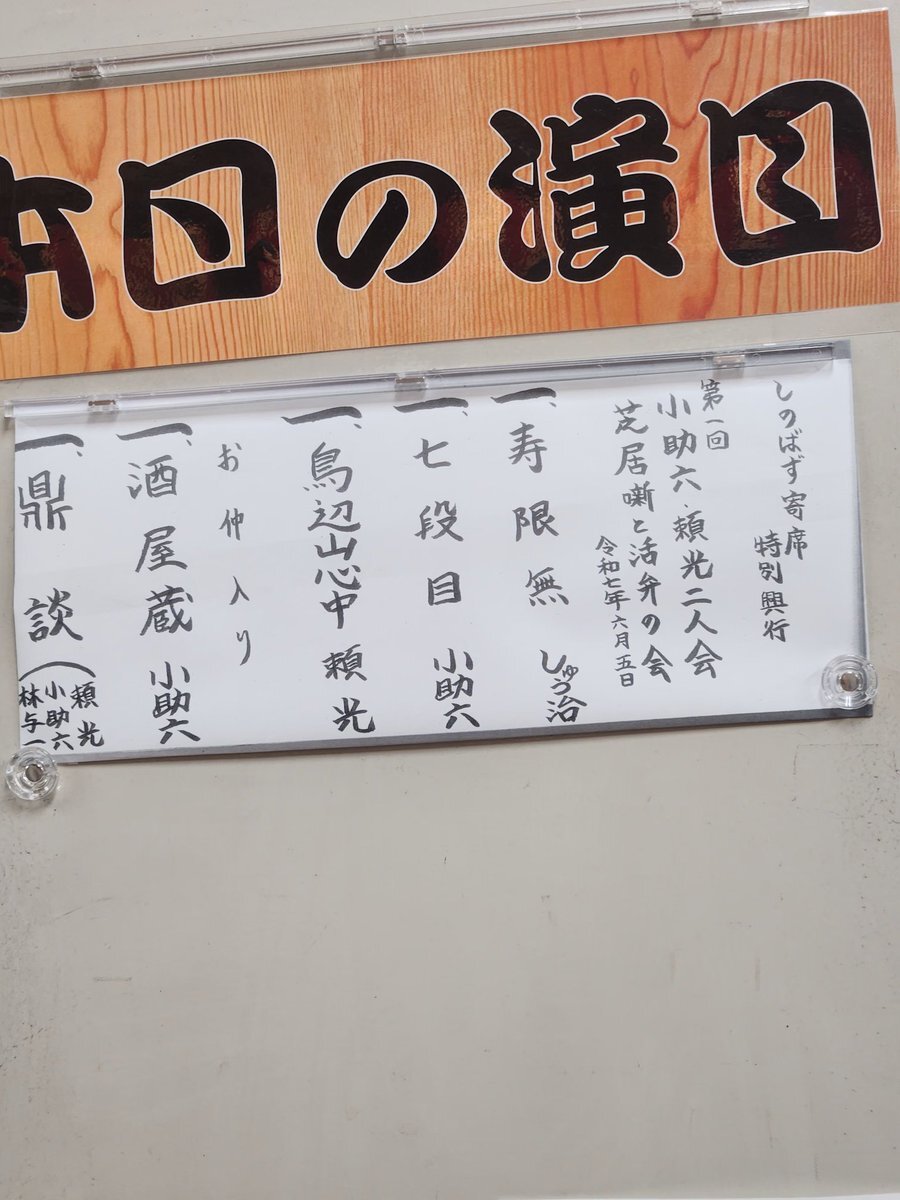 本日の演目
しのばず寄席
特別興行
第一回
小助六・頼光二人会
芝居噺と活弁の会
令和七年六月五日
一、寿限無 しゅう治
一、七段目 小助六
一、鳥辺山心中 頼光
お仲入り
一、酒屋蔵 小助六
一、鼎談(頼光
小助六
林与一